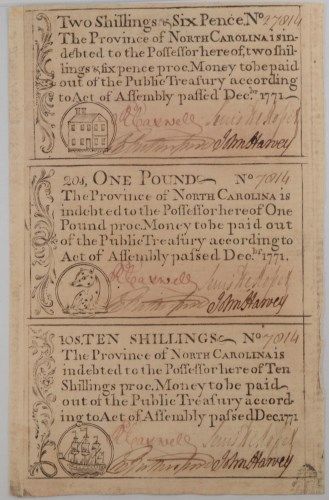 Two Shillings & Six Pence. No 27814
The Province of NORTH CAROLINA is in-
debted to the Possessor hereof, two shil-
lings & six pence proc. Money to be paid
out of the Public Treasury according
to Act of Assembly passed Decbr. 1771
R Caswell Lewis De Rosset
John Harvey
20s. ONE POUND No 7814
The Province of NORTH CAROLINA is
indebted to the Possessor hereof One
Pound proc. Money to be paid out
of the Public Treasury according to
Act of Assembly passed Decbr. 1771.
R Caswell Lewis De Rosset
John Harvey
10s. TEN SHILLINGS No 7814
The Province of NORTH CAROLINA is
indebted to the Possessor hereof Ten
Shillings proc. Money to be paid
out of the Public Treasury accord-
ing to Act of Assembly passed Dec. 1771
R Caswell Lewis De Rosset
Rutherfurd John Harvey